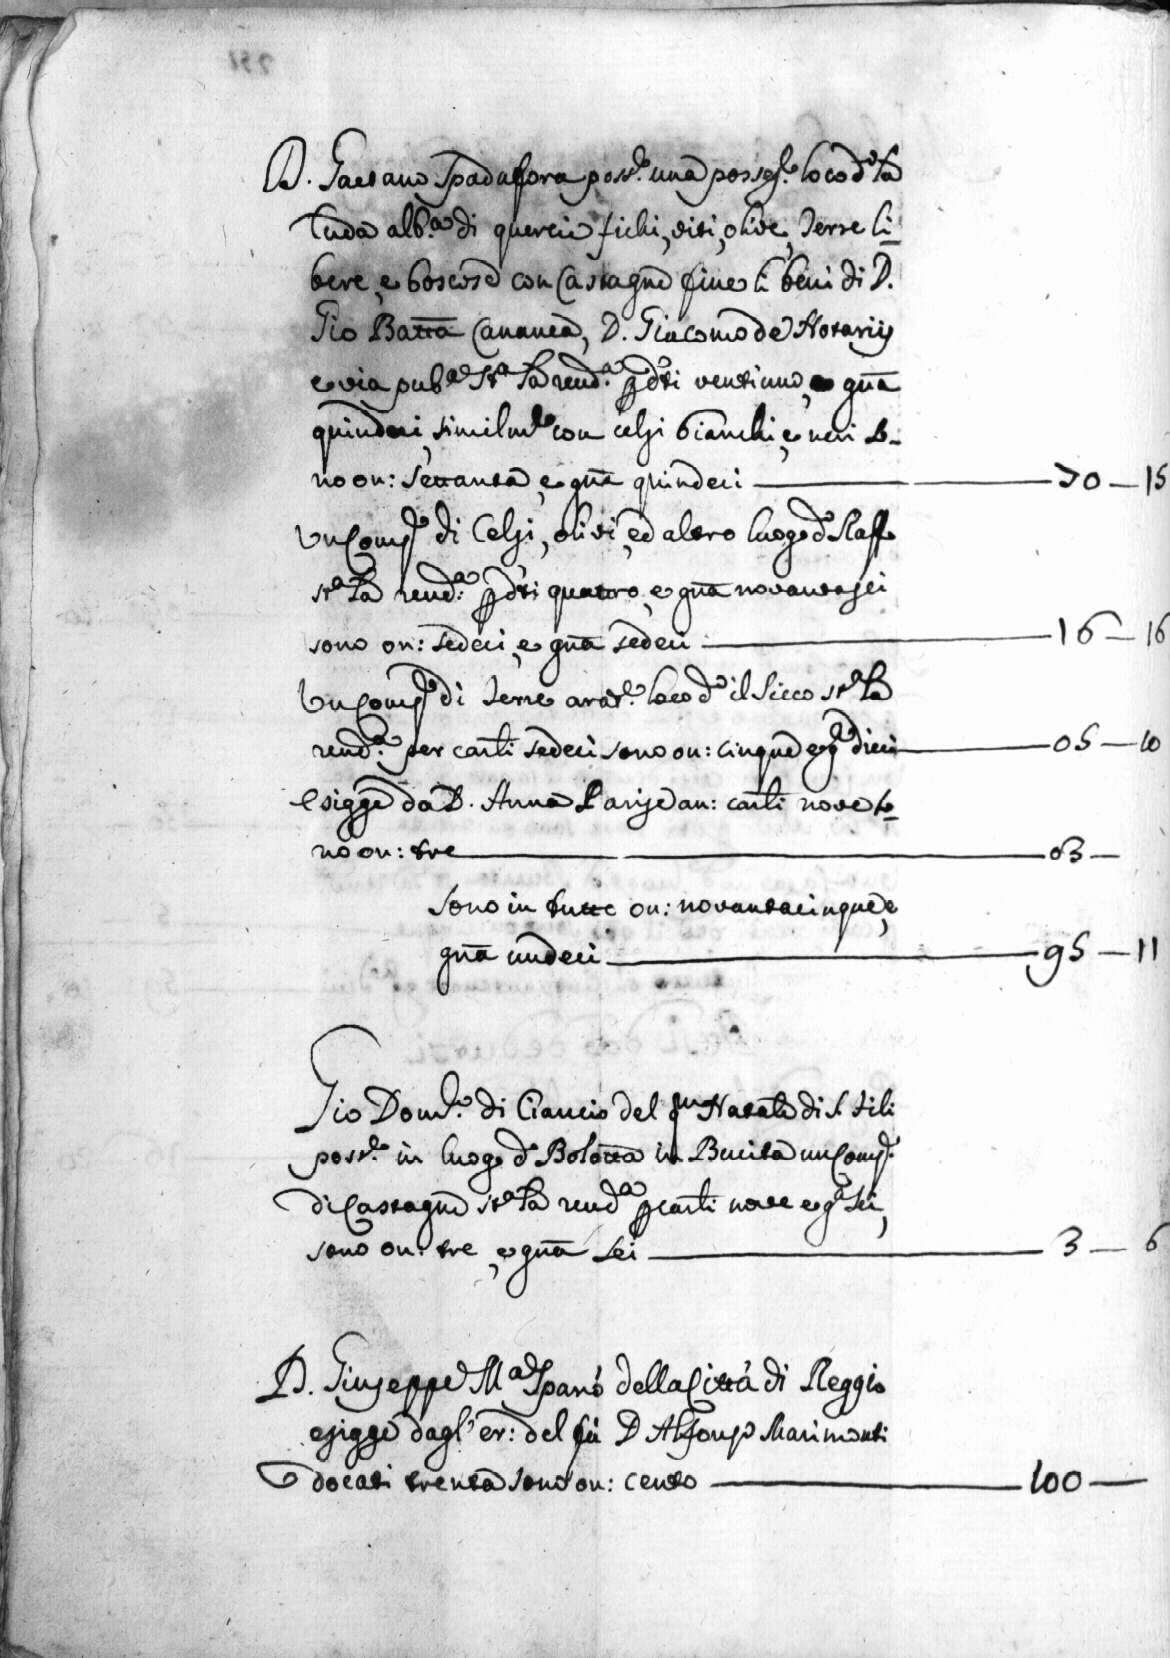 D. Gaetano Spadafora poss.e una possess.e loco d.o la
Tuda alb.a di quercie fichi, viti, olive, terre li=
bere, e boscose con Castagne fine li beni di D.
Gio Batta Cananea, D. Giacomo de Notariis
e via pub.a st.a la rend.a p d.ti ventiuno, e gna
quindeci, similm.e con celsi bianchi, e neri so=
no on: settanta, e gna quindeci 70 — 15
Un Comp.o di Celsi, olivi, ed altro luogo d.o
st.a la rend.a p d.ti quattro, e gna novantasei
sono on: sedeci, e gna sedeci 16 — 16
Un Comp.o di terre arat.e loco d.o il Sicco st.a la
rend.a per carli sedeci sono on: cinque e g.a dieci 05 — 10
Esigge da D. Anna Parise an: carli nove so=
no on: tre 03 —
Sono in tutte on: novantacinque, e
gna undeci 95 — 11
Gio Dom.o di Ciancio del qm Natale di S. Fili
poss.e in luogo d.o Bolotta in Bucita un Comp.o
di Castagne st.a la rend.a p carli nove e g.a sei,
sono on: tre, e gna sei 3 — 6
D. Giuseppe M.a Spanò della Città di Reggio
esigge dagl' er: del fù D Alfonso Marimonti
docati trenta sono on: cento 100 —